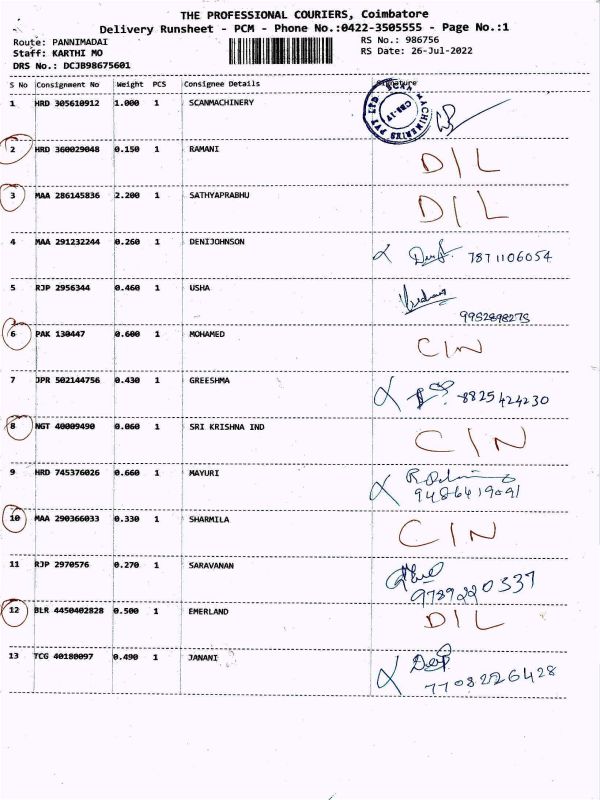 THE PROFESSIONAL COURIERS, Coimbatore
Delivery Runsheet - PCM - Phone No.:0422-3505555 - Page No.:1
Route: PANNIMADAI RS No.: 986756
Staff: KARTHI MO RS Date: 26-Jul-2022
DRS No.: DCJB98675601
S No Consignment No Weight PCS Consignee Details Signature
1 HRD 305610912 1.000 1 SCANMACHINERY
2 HRD 360029048 0.150 1 RAMANI D/L
3 MAA 286145836 2.200 1 SATHYAPRABHU D/L
4 MAA 291232244 0.260 1 DENIJOHNSON 7871106054
5 RJP 2956344 0.460 1 USHA
9952898275
6 PAK 130447 0.600 1 MOHAMED C/N
7 JPR 502144756 0.430 1 GREESHMA 8825424230
8 NGT 40009490 0.060 1 SRI KRISHNA IND C/N
9 HRD 745376026 0.660 1 MAYURI
9486419091
10 MAA 290366033 0.330 1 SHARMILA C/N
11 RJP 2970576 0.270 1 SARAVANAN
9789220337
12 BLR 4450402828 0.500 1 EMERLAND D/L
13 TCG 40180097 0.490 1 JANANI
7708226428